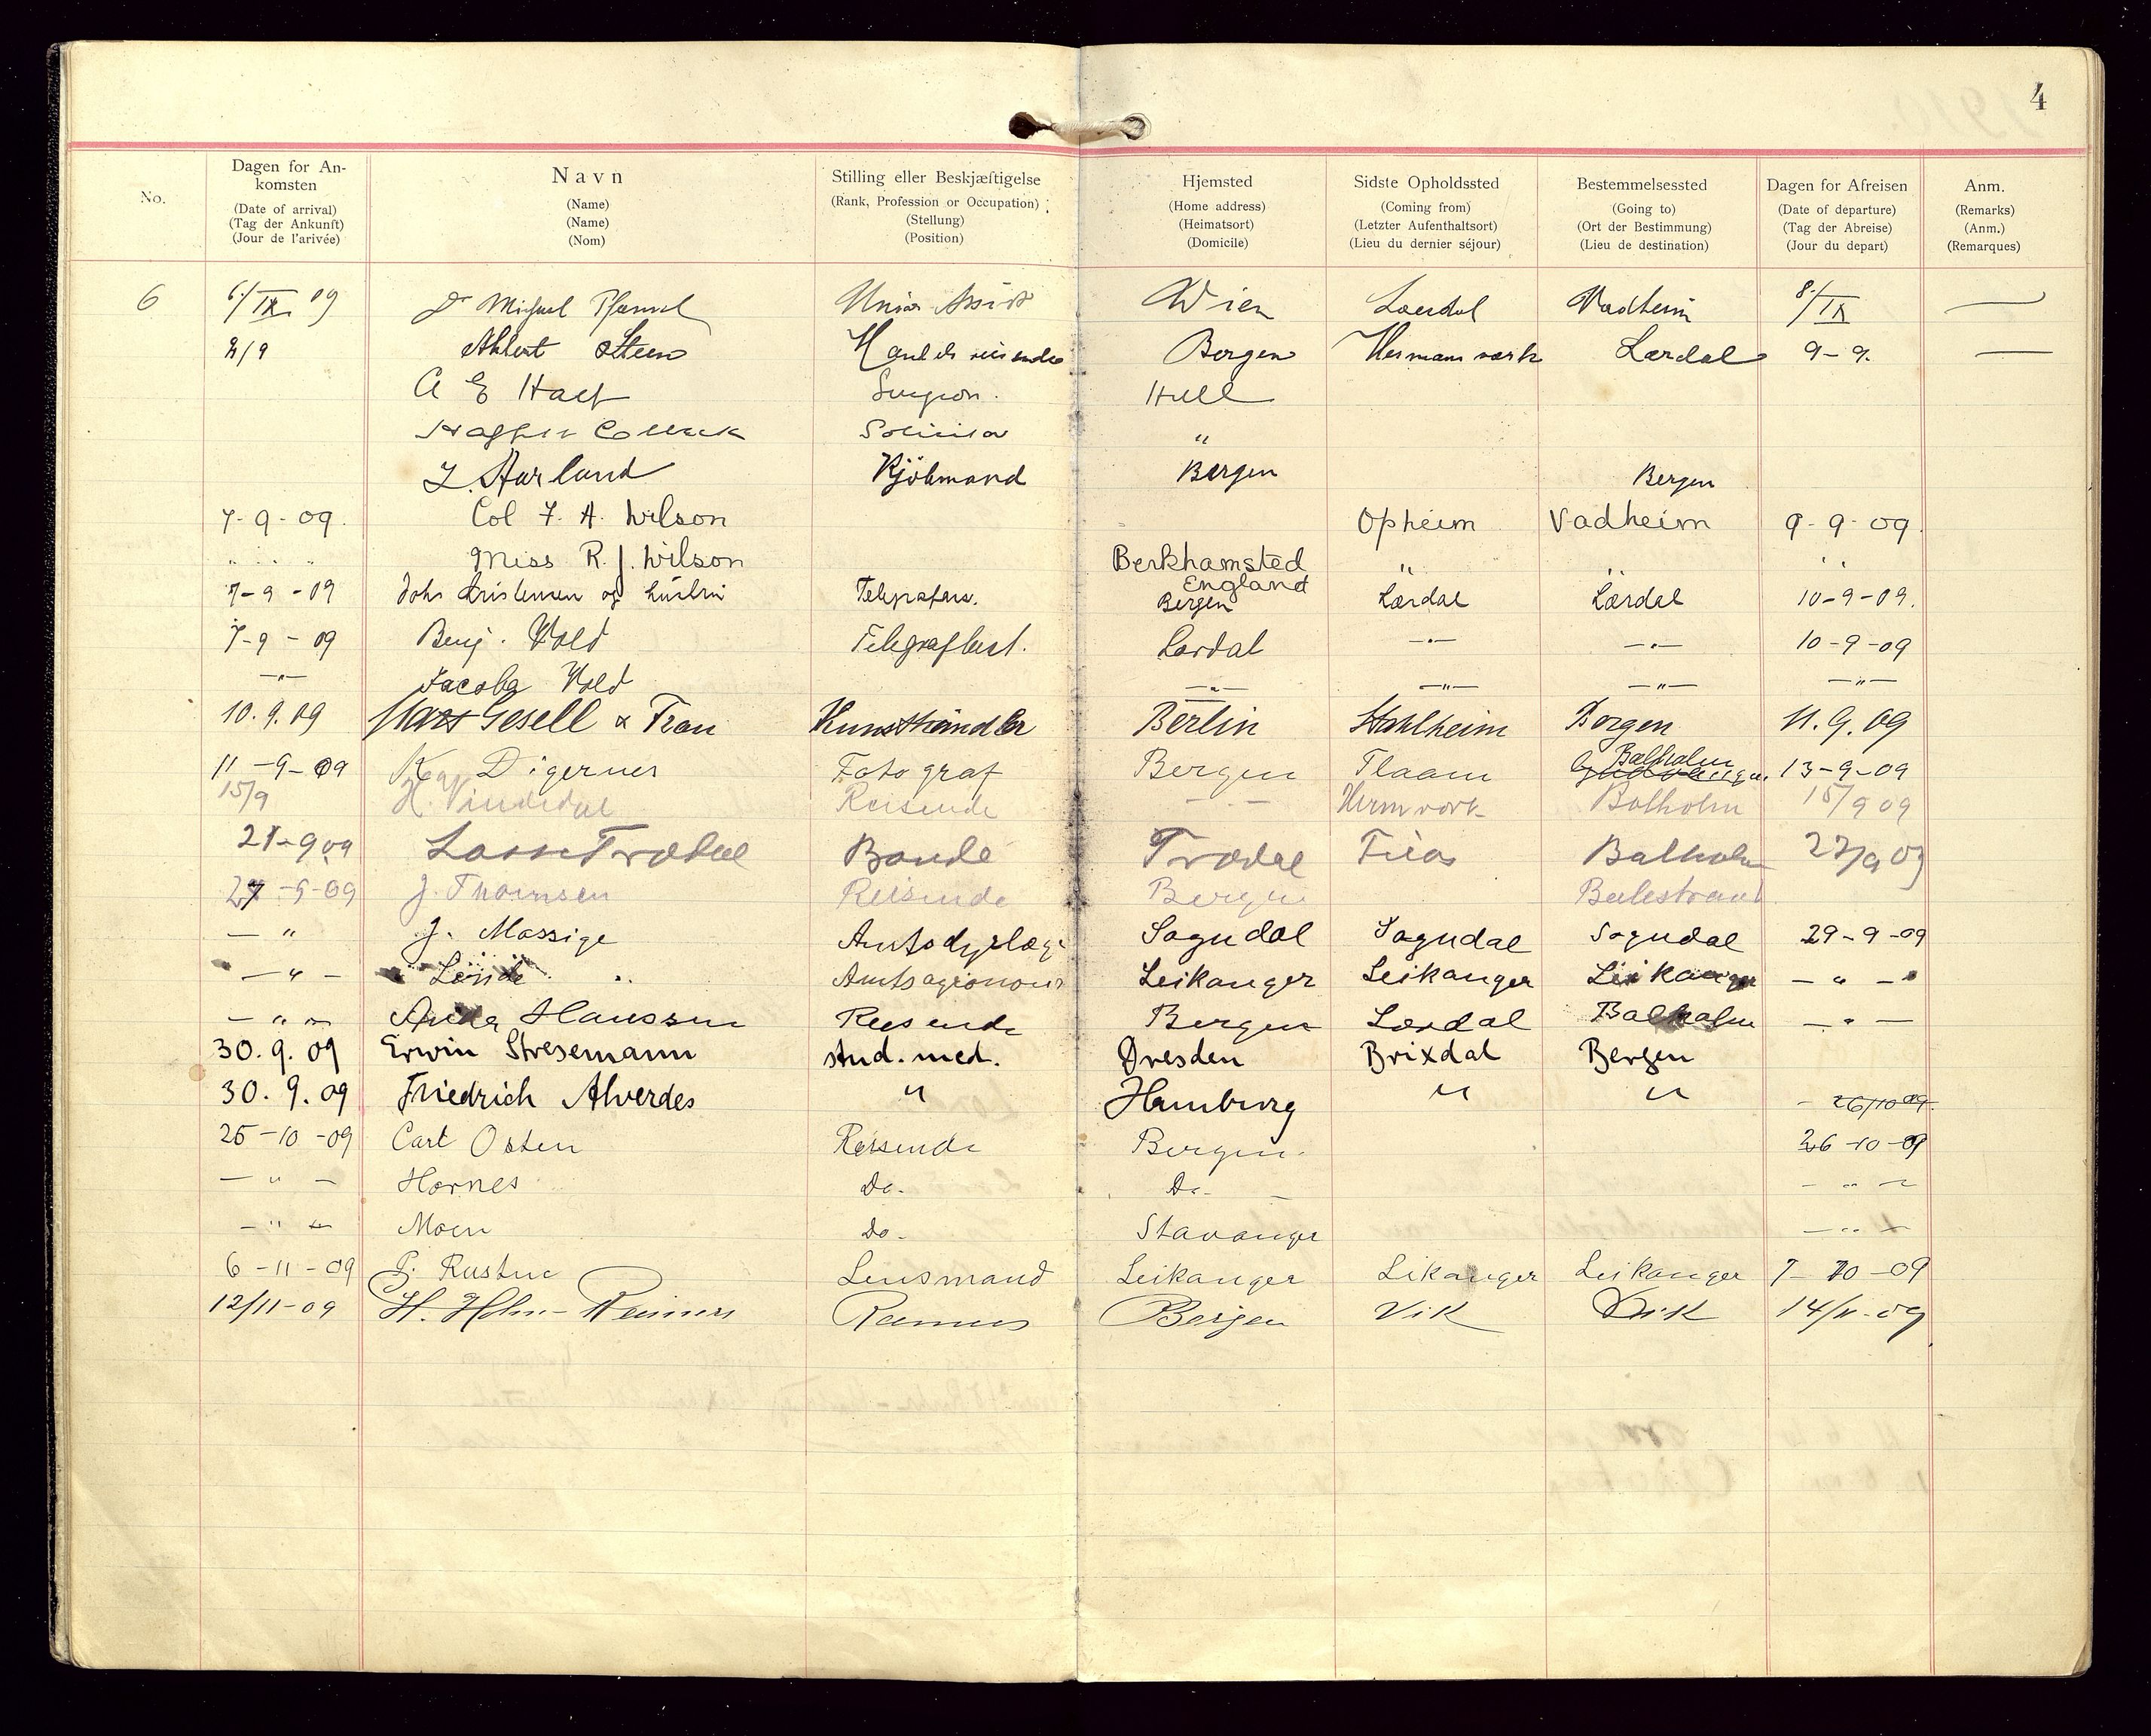 4
No. Dagen for An-komsten (Date of arrival) (Tag der Ankunft) (Jour de l'arivée) Navn (Name) (Name) (Nom) Stilling eller Beskjæftigelse (Rank, Profession or Occupation) (Stellung) (Position) Hjemsted (Home address) (Heimatsort) (Domicile) Sidste Opholdssted (Coming from) (Letzter Aufenthaltsort) (Lieu du dernier séjour) Bestemmelsessted (Going to) (Ort der Bestimmung) (Lieu de destination) Dagen for Afreisen (Date of departure) (Tag der Abreise) (Jour du depart) Anm. (Remarks) (Anm.) (Remarques)
6 6./IX 09 Dr Wien Laerdal Vadheim 8./IX —
/9 Steen Handelsreisende Bergen Hermansværk Lærdal 9-9. —
A E Surgeon. Hull
Solicitor "
Aarland Kjöbmand Bergen Bergen
7-9-09. Col F. A. Wilson Opheim Vadheim 9-9-09.
" " " Miss R. J. Wilson Berkhamsted England " " "
7-9-09 Johs Kristensen og Bergen Lærdal Lærdal 10-9-09.
7-9-09 Benj. Wold Telegrafbest. Lærdal —"— —"— 10-9-09
—"— Jacoba Wold —"— —"— —"— —"—
10.9.09 Gesell & Frau Kunsthändler Berlin Stahlheim Bergen 11.9.09
11-9-09 K Digernes Fotograf Bergen Flaam Balholm 13-9-09
15/9 H. Vindedal Reisende — — Balholm 15/9 09
21-9 09 Lasse Trædal Bonde Trædal Balholm 09
27-9-09 J. Thomsen Reisende Bergen Balestrand
— " J. Massige Sogndal Sogndal Sogndal 29-9-09
— " — Leikanger Leikanger Leikanger — " —
— " — Hanssen Reisende Bergen Lærdal Balholm — " —
30.9.09 Erwin Stresemann stud. med. Dresden Brixdal Bergen
30.9.09 Friedrich Alverdes " Hamburg " " - 26/10 09
25-10-09 Carl Osten Reisende Bergen. 26-10-09
— " — Hornes Do. Do. — — " —
— " — Moen Do. Stavanger — " —
6-11-09 P. Lensmand Leikanger Leikanger Leikanger 7-10-09
12/11-09 H. Bergen Vik Vik 14/11-09